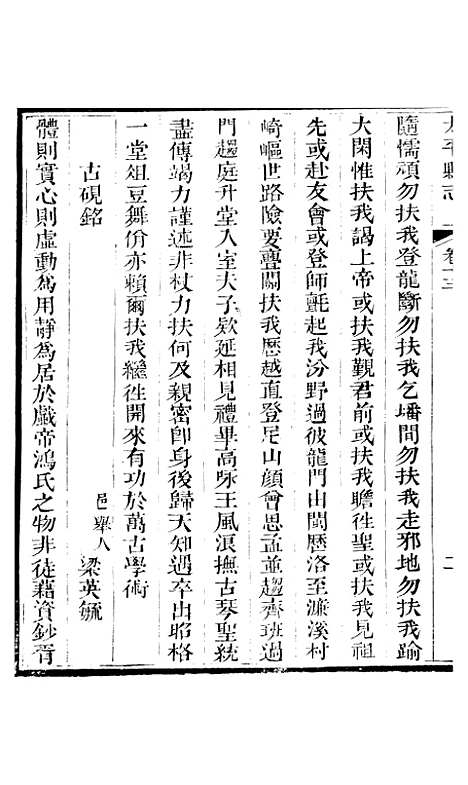 太平縣志 卷十三 二
隨懦頑勿扶我登龍斷勿扶我乞墦間勿扶我走邪地勿扶我踰
大閑惟扶我謁上帝或扶我覲君前或扶我瞻徃聖或扶我見祖
先或赴友會或登師氈起我汾野過彼龍門山閩歷洛至濂溪村
崎嶇世路險要疊關扶我歷越直登尼山顏會思孟並趨齊班過
門趨庭升堂入室夫子欵延相見禮畢高咏王風浪撫古琴聖統
盡傳竭力謹述非杖力扶何及親密卽身後歸天知遇卒由昭格
一堂俎豆舞佾亦賴爾扶我繼徃開來有功於萬古學術
古硯銘 邑舉人 梁英毓
體則實心則虛動爲用靜爲居於戲帝鴻氏之物非徒藉資鈔胥